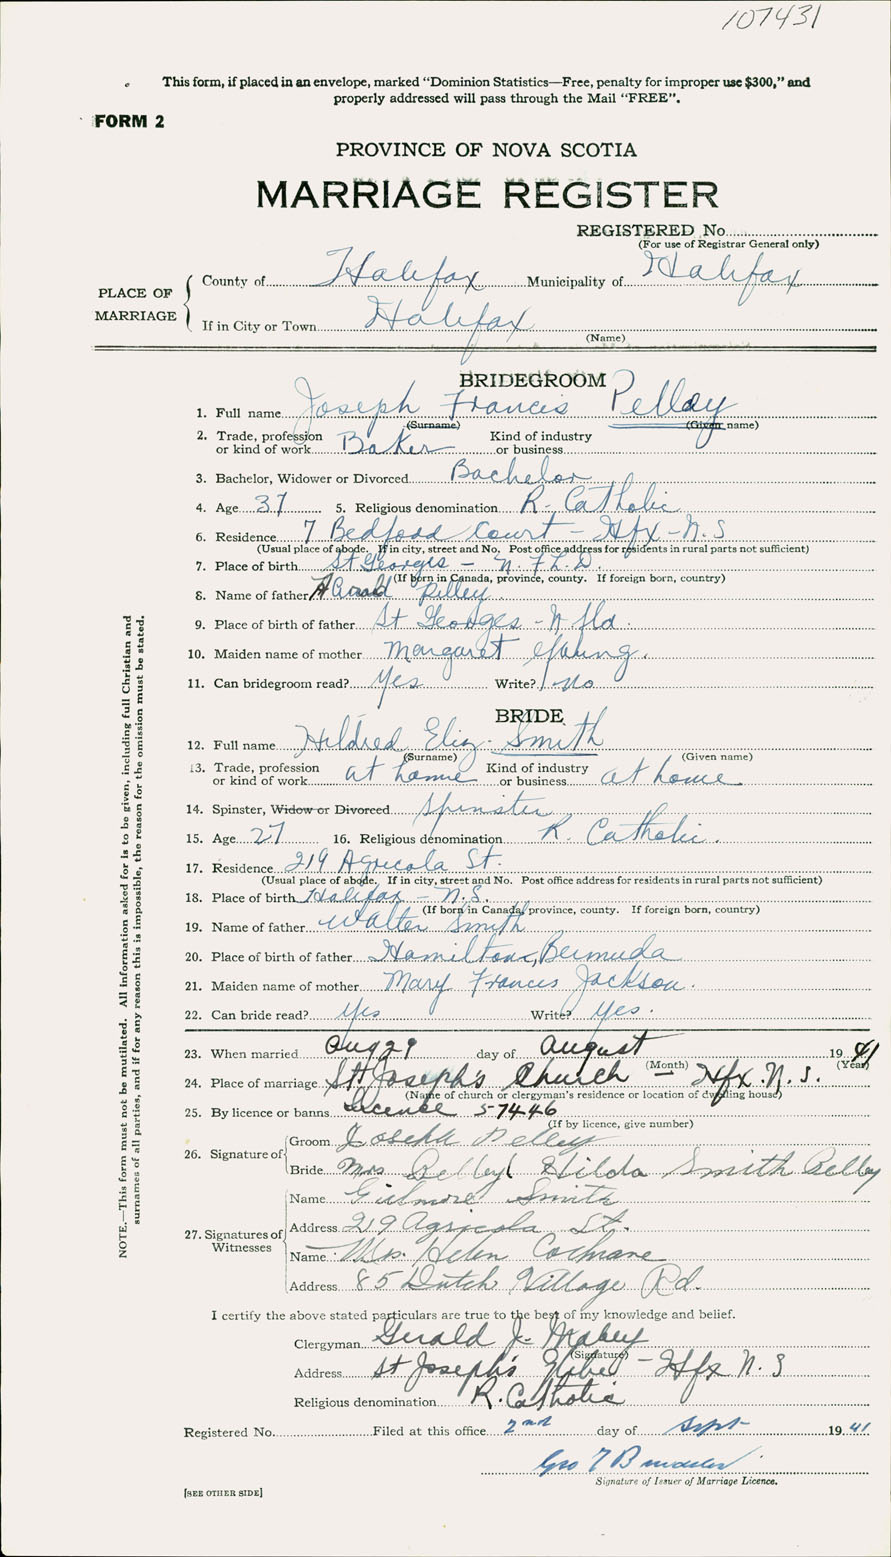 107431
This form, if placed in an envelope, marked "Dominion Statistics—Free, penalty for improper use $300," and
properly addressed will pass through the Mail "FREE".
FORM 2
PROVINCE OF NOVA SCOTIA
MARRIAGE REGISTER
REGISTERED No.
(For use of Registrar General only)
PLACE OF MARRIAGE
County of Halifax Municipality of Halifax
If in City or Town Halifax
(Name)
BRIDEGROOM
1. Full name Joseph Francis Pelley
(Surname) (Given name)
2. Trade, profession or kind of work Baker Kind of industry or business
3. Bachelor, Widower or Divorced Bachelor
4. Age 37 5. Religious denomination R. Catholic
6. Residence 7 Bedford Court - Hfx - N.S
(Usual place of abode. If in city, street and No. Post office address for residents in rural parts not sufficient)
7. Place of birth St Georges - N.F.L.D.
(If born in Canada, province, county. If foreign born, country)
8. Name of father Pelley
9. Place of birth of father St Georges - Nfld.
10. Maiden name of mother Margaret Young.
11. Can bridegroom read? Yes Write? No
BRIDE
12. Full name Hildred Eliz. Smith
(Surname) (Given name)
13. Trade, profession or kind of work at home Kind of industry or business at home
14. Spinster, Widow or Divorced Spinster
15. Age 27 16. Religious denomination R. Catholic.
17. Residence 219 Agricola St.
(Usual place of abode. If in city, street and No. Post office address for residents in rural parts not sufficient)
18. Place of birth Halifax - N.S.
(If born in Canada, province, county. If foreign born, country)
19. Name of father Walter Smith
20. Place of birth of father Hamilton, Bermuda
21. Maiden name of mother Mary Frances Jackson.
22. Can bride read? Yes Write? Yes.
23. When married Aug 29 day of August 1941
(Month) (Year)
24. Place of marriage St Joseph's Church - Hfx. N.S.
(Name of church or clergyman's residence or location of dwelling house)
25. By licence or banns Licence 57446
(If by licence, give number)
26. Signature of
Groom Joseph Pelley
Bride Mrs Pelley Hilda Smith Pelley
27. Signatures of Witnesses
Name Gilmore Smith
Address 219 Agricola St.
Name Mrs. Helen Cochrane
Address 85 Dutch Village Rd.
I certify the above stated particulars are true to the best of my knowledge and belief.
Clergyman Gerald J.
(Signature)
Address St Joseph's Glebe - Hfx N.S
Religious denomination R. Catholic
Registered No. Filed at this office 2nd day of Sept 1941
Geo
Signature of Issuer of Marriage Licence.
[SEE OTHER SIDE]
NOTE.—This form must not be mutilated. All information asked for is to be given, including full Christian and
surnames of all parties, and if for any reason this is impossible, the reason for the omission must be stated.